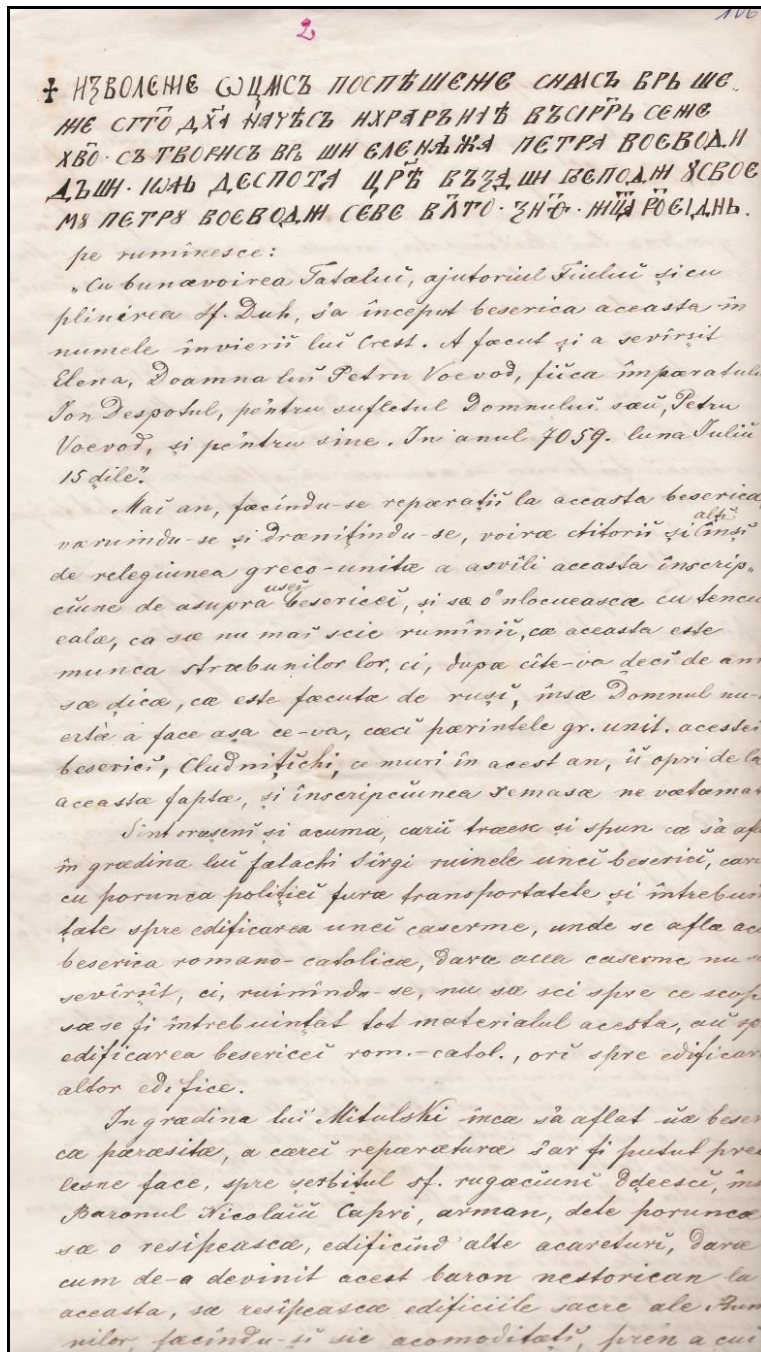 2
106
✠ НꙀВОЛЄНІЄ ѠЦМСЪ ПОСПѢШЕНІЄ СНМСЪ ВРЬ ШЕ
НІЕ СГГО ДХА НАЧѢСЬ НХРАРЪНІѢ ВЪСІРРЬ СЕНІЄ
ХВО · СЪ ТВОРИСЪ ВРЬ ШИ ЄЛЕНѢЖА ПЕТРА ВОЄВОДИ
ДЪШИ · ІѠАНЬ ДЕСПОТА ЦРѢ ВЪЗА ШИ ГОСПОДЖИ ꙊСВОЄ
МꙊ ПЕТРꙊ ВОЄВОДЖИ СЕВЕ
pe rumînesce:
„Cu bunævoirea Tatæluĭ, ajutoriul Fiiuluĭ și cu
plinirea sf. Duh, s'a început beserica aceasta în
numele învieriĭ luĭ Crest. A fæcut și a sevîrșit
Elena, Doamna luĭ Petru Voevod, fiica împæratulu
Ion Despotul, pentru sufletul Domnuluĭ sæŭ, Petru
Voevod, și pentru sine. In anul 7059. luna Iuliŭ
15 ḑile".
Maĭ an, fæcîndu-se reparațiĭ la aceasta beserica,
væruindu-se și dræniţindu-se, voiræ ctitoriĭ și alțĭ înșĭ
de relegiunea greco-unitæ a asvîli aceasta înscrip„
ciune de asupra useĭ besericeĭ, și sæ o'nlocueascæ cu tencu
ealæ, ca sæ nu maĭ scie rumîniĭ, cæ aceasta este
munca stræbunilor lor, ci, dupæ cîte-va ḑecĭ de anĭ
sæ ḑicæ, cæ este fæcutæ de rușĭ, însæ Domnul nu-
ertæ a face așa ce-va, cæcĭ pærintele gr. unit. acesteĭ
besericĭ, Cludnițichi, ce muri în acest an, iĭ opri de la
aceastæ faptæ, și înscripciunea remasæ nevætæmat
Sint orașenĭ și acuma, cariĭ træesc și spun cæ s'a afl
în grædina luĭ Falachi Sîrgi ruinele uneĭ besericĭ, car
cu porunca polițieĭ furæ transportatele și întrebuin
țate spre edificarea uneĭ caserme, unde se aflæ ac
beserica romano-catolicæ, daræ acea caserme nu s
sevîrșit, ci, ruinîndu-se, nu sæ sci spre ce scop
sæ se fi întrebuințat tot materialul acesta, aŭ sp
edificarea besericeĭ rom.-catol., orĭ spre edificar
altor edifice.
In grædina luĭ Mitulski încæ s'a aflat uæ beser
cæ pæræsitæ, a careĭ reparæturæ s'ar fi putut pre
lesne face, spre șerbițul sf. rugæciunĭ Ddeescĭ, îns
Baronul Nicolaiŭ Capri, arman, dete poruncæ
sæ o resipeascæ, edificînd alte acareturĭ, daræ
cum de-a devinit acest baron nestorican la
aceasta, sæ resipeascæ edificiile sacre ale Rum
nilor, fæcîndu-șĭ sie acomoditæțĭ, prĕn a cui